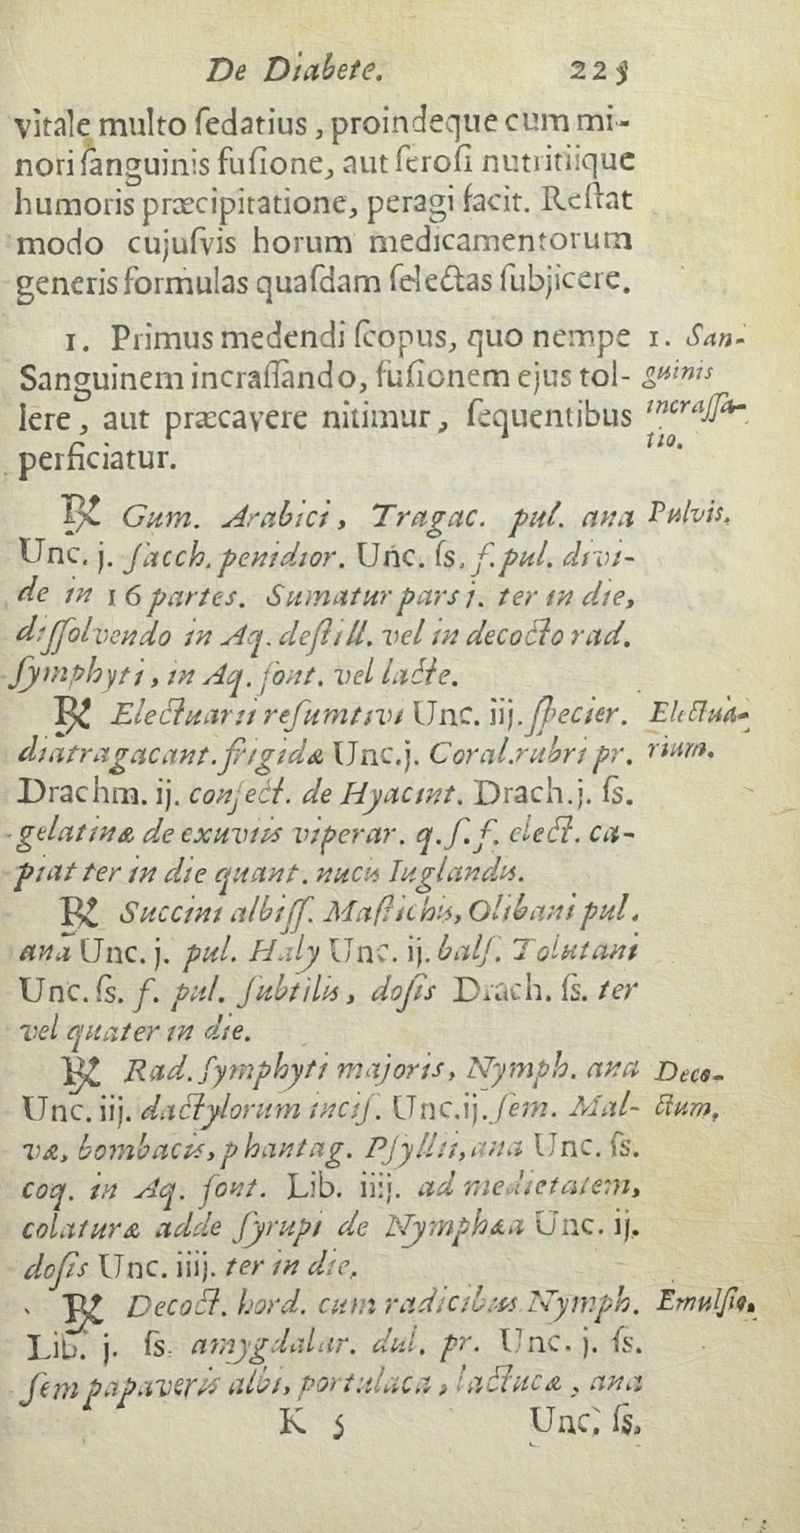 De Diabete. 225
vitale multo ſedatius, proindeque cum mi-
nori ſanguinis fuſione, aut ſeroſi nutritiique
humoris præcipitatione, peragi facit. Reſtat
modo cujuſvis horum medicamentorum
generis formulas quaſdam ſelectas ſubjicere.
1. Primus medendi ſcopus, quo nempe
Sanguinem incraſſando, fuſionem ejus tol-
lere, aut præcavere nitimur, ſequentibus
perficiatur.
1. San-
guinis
incraſſa-
tio.
℞ Gum. Arabici, Tragac. pul. ana
Unc. j. ſacch. penidior. Unc. ſs. f. pul. divi-
de in 16 partes. Sumatur pars j. ter in die,
diſſolvendo in Aq. deſtill. vel in decocto rad.
ſymphyti, in Aq. font. vel lacte.
Pulvis.
℞ Electuarii reſumtivi Unc. iij. ſpecier.
diatragacant. frigidæ Unc. j. Coral. rubri pr.
Drachm. ij. confect. de Hyacint. Drach. j. ſs.
gelatinæ de exuviis viperar. q. ſ. f. elect. ca-
piat ter in die quant. nucis Iuglandis.
Electua-
rium.
℞ Succini albiſſ. Maſtichis, Olibani pul.
ana Unc. j. pul. Haly Unc. ij. balſ. Tolutani
Unc. ſs. f. pul. ſubtilis, doſis Drach. ſs. ter
vel quater in die.
℞ Rad. ſymphyti majoris, Nymph. ana
Unc. iij. dactylorum inciſ. Unc. ij. ſem. Mal-
væ, bombacis, phantag. Pſyllii, ana Unc. ſs.
coq. in Aq. font. Lib. iiij. ad medietatem,
colaturæ adde ſyrupi de Nymphæa Unc. ij.
doſis Unc. iiij. ter in die.
Deco-
ctum.
℞ Decoct. hord. cum radicibus Nymph.
Lib. j. ſs. amygdalar. dul. pr. Unc. j. ſs.
ſem papaveris albi, portulaca, lactucæ, ana
Emulſio.
K 5 Unc. ſs.